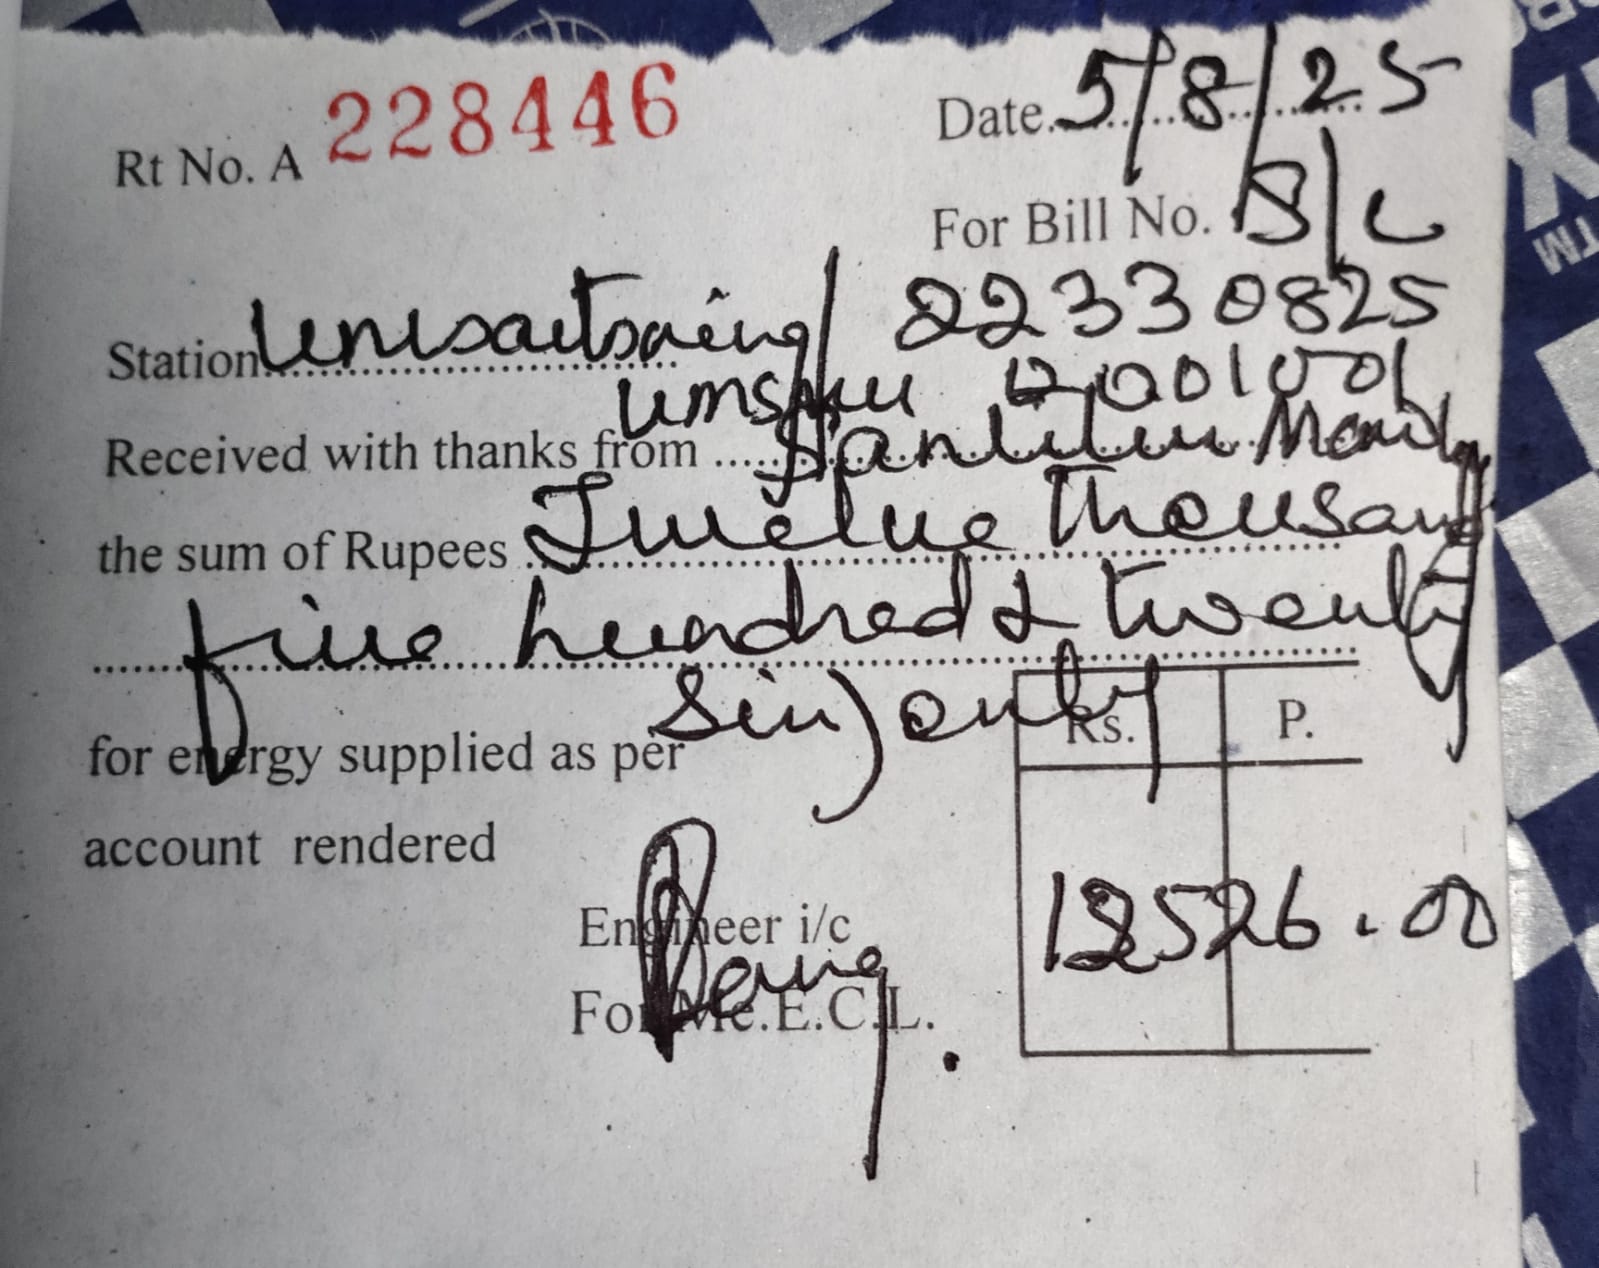 Rt No. A 228446
Date 5/8/25
For Bill No. B/C
Station Umsaitsaing/ 22330825
Umshru 12001001
Received with thanks from
the sum of Rupees Twelve Thousand
five hundred & twenty
six) only
for energy supplied as per
account rendered
Rs. P.
12526.00
Engineer i/c
For Me.E.C.L.